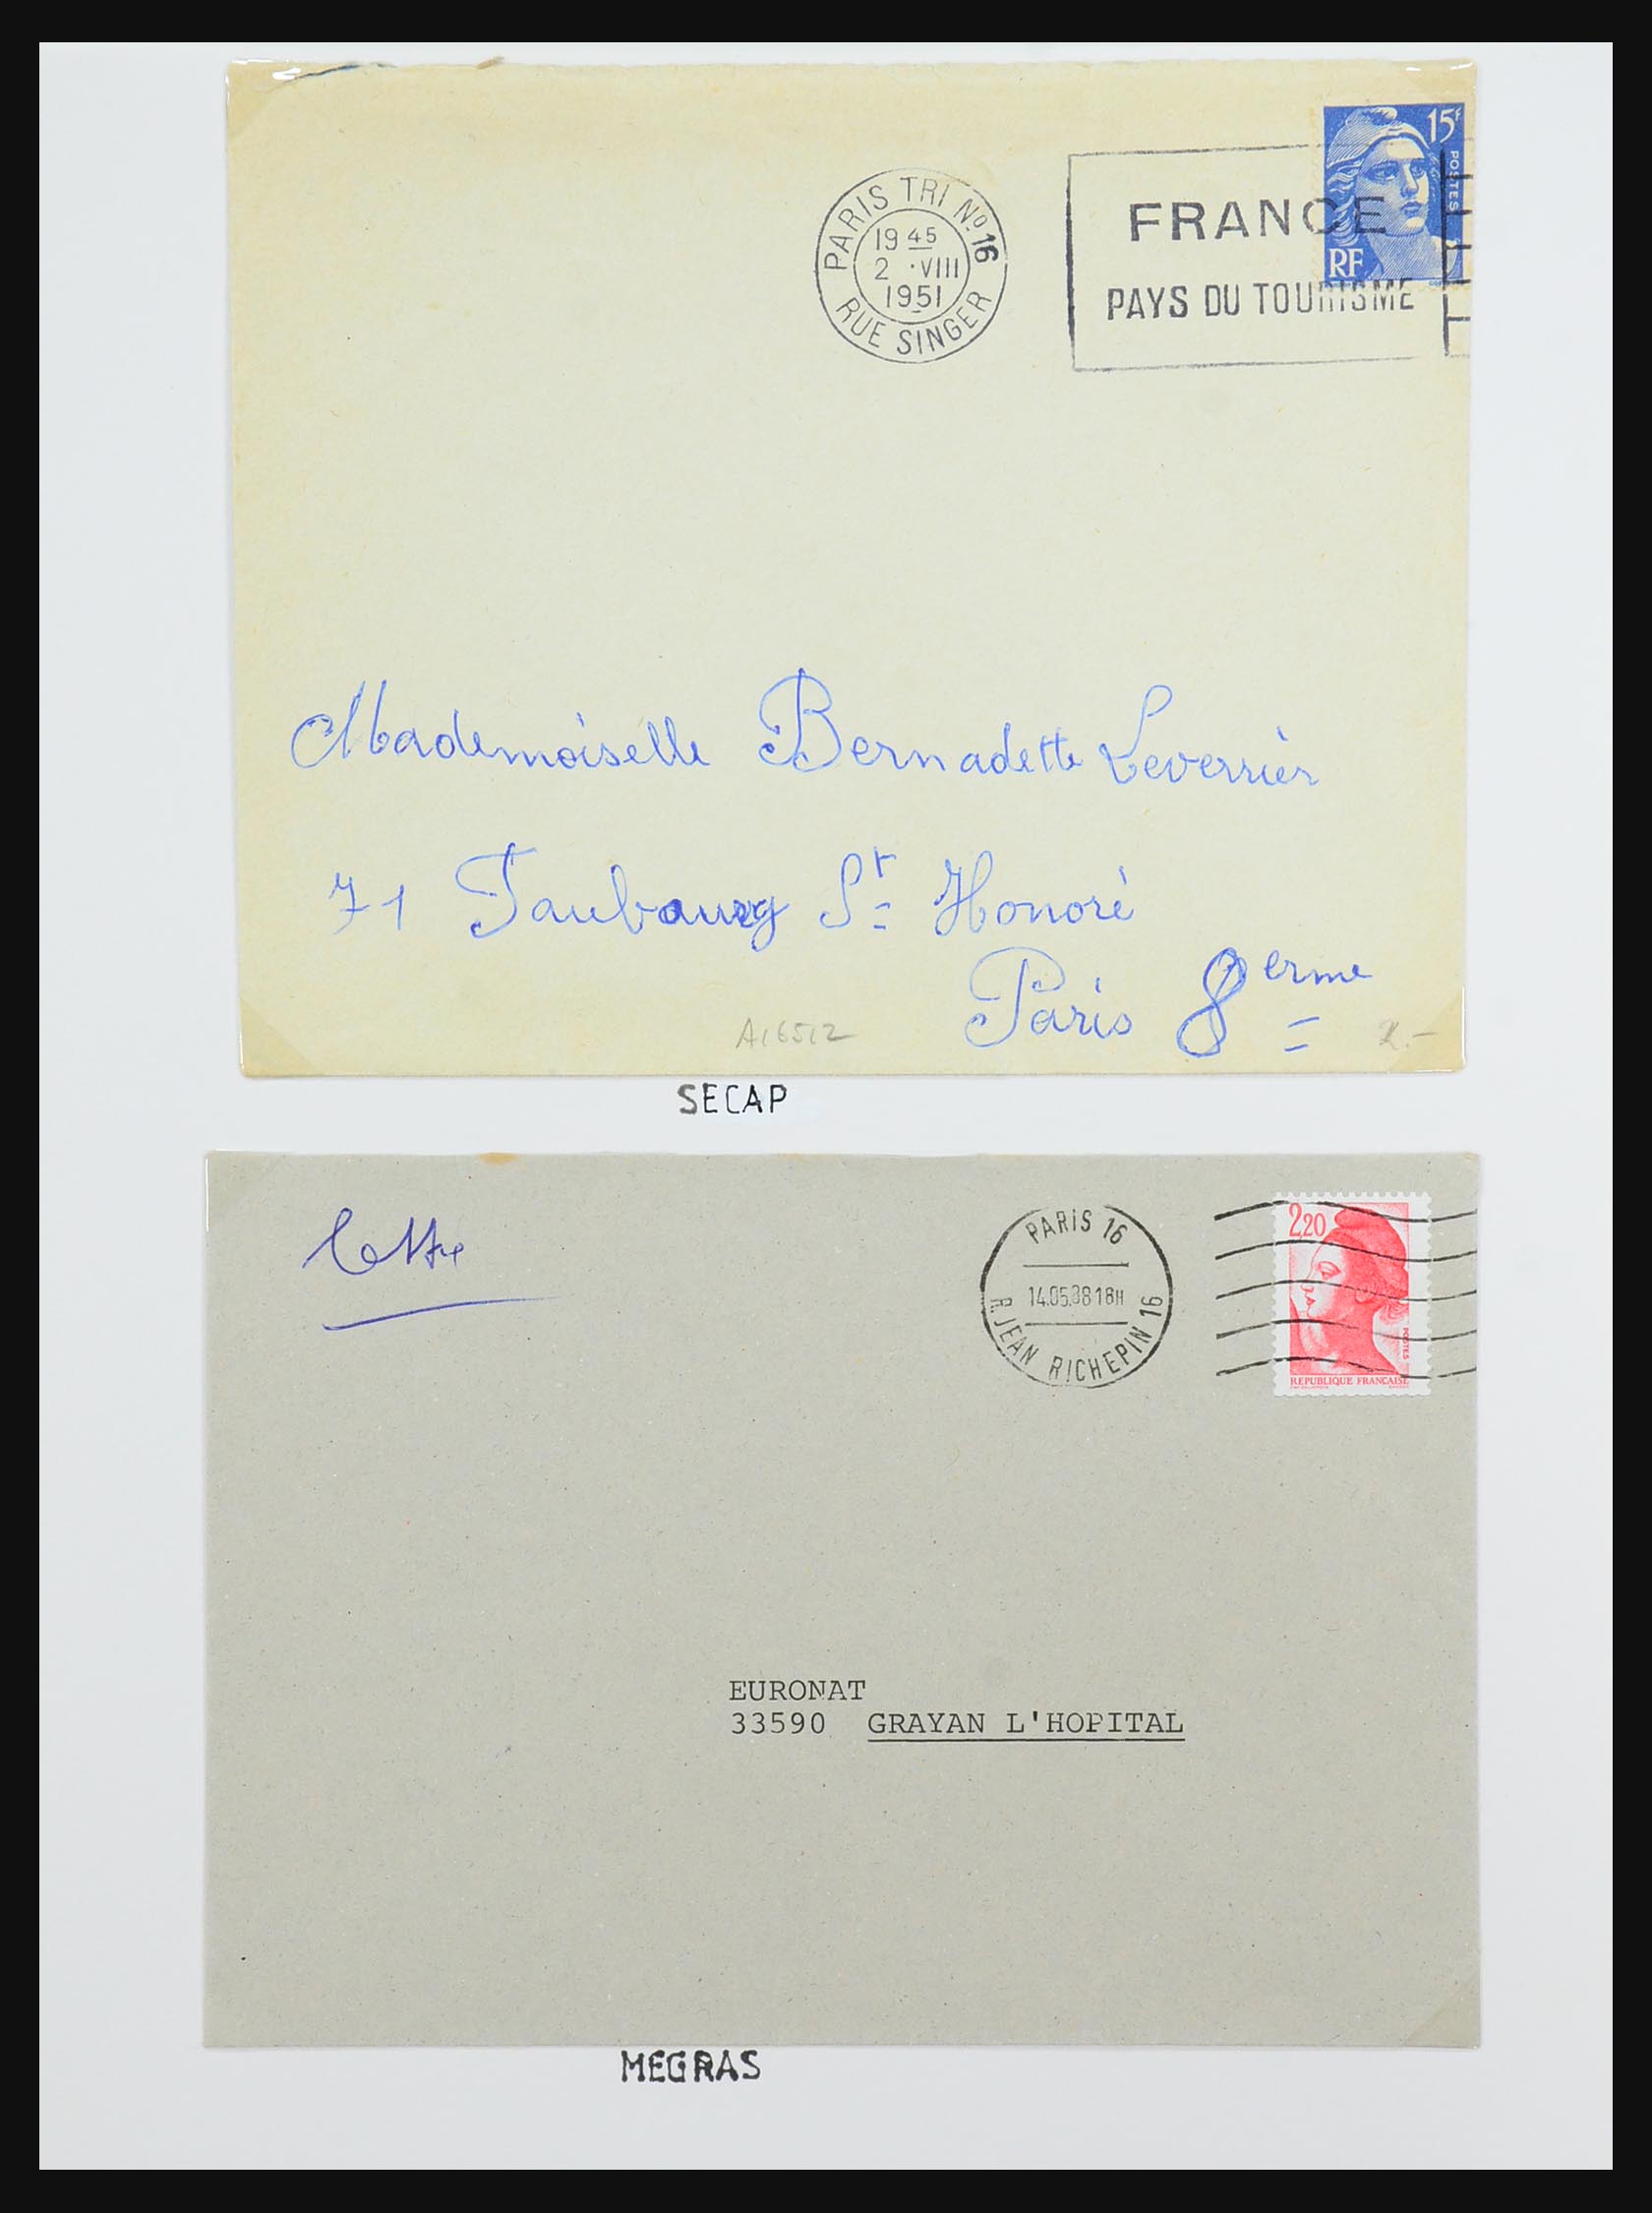 15F
POSTES
RF
PARIS TRI No 16
19 45
2 •VIII
1951
RUE SINGER
FRANCE
PAYS DU TOURISME
Mademoiselle Bernadette Leverrier
71 Faubourg St Honoré
Paris 8erme
A16512
2.-
SECAP
lettre
PARIS 16
14.05.88 18H
R. JEAN RICHEPIN 16
2,20
POSTES
REPUBLIQUE FRANCAISE
EURONAT
33590 GRAYAN L'HOPITAL
MEGRAS